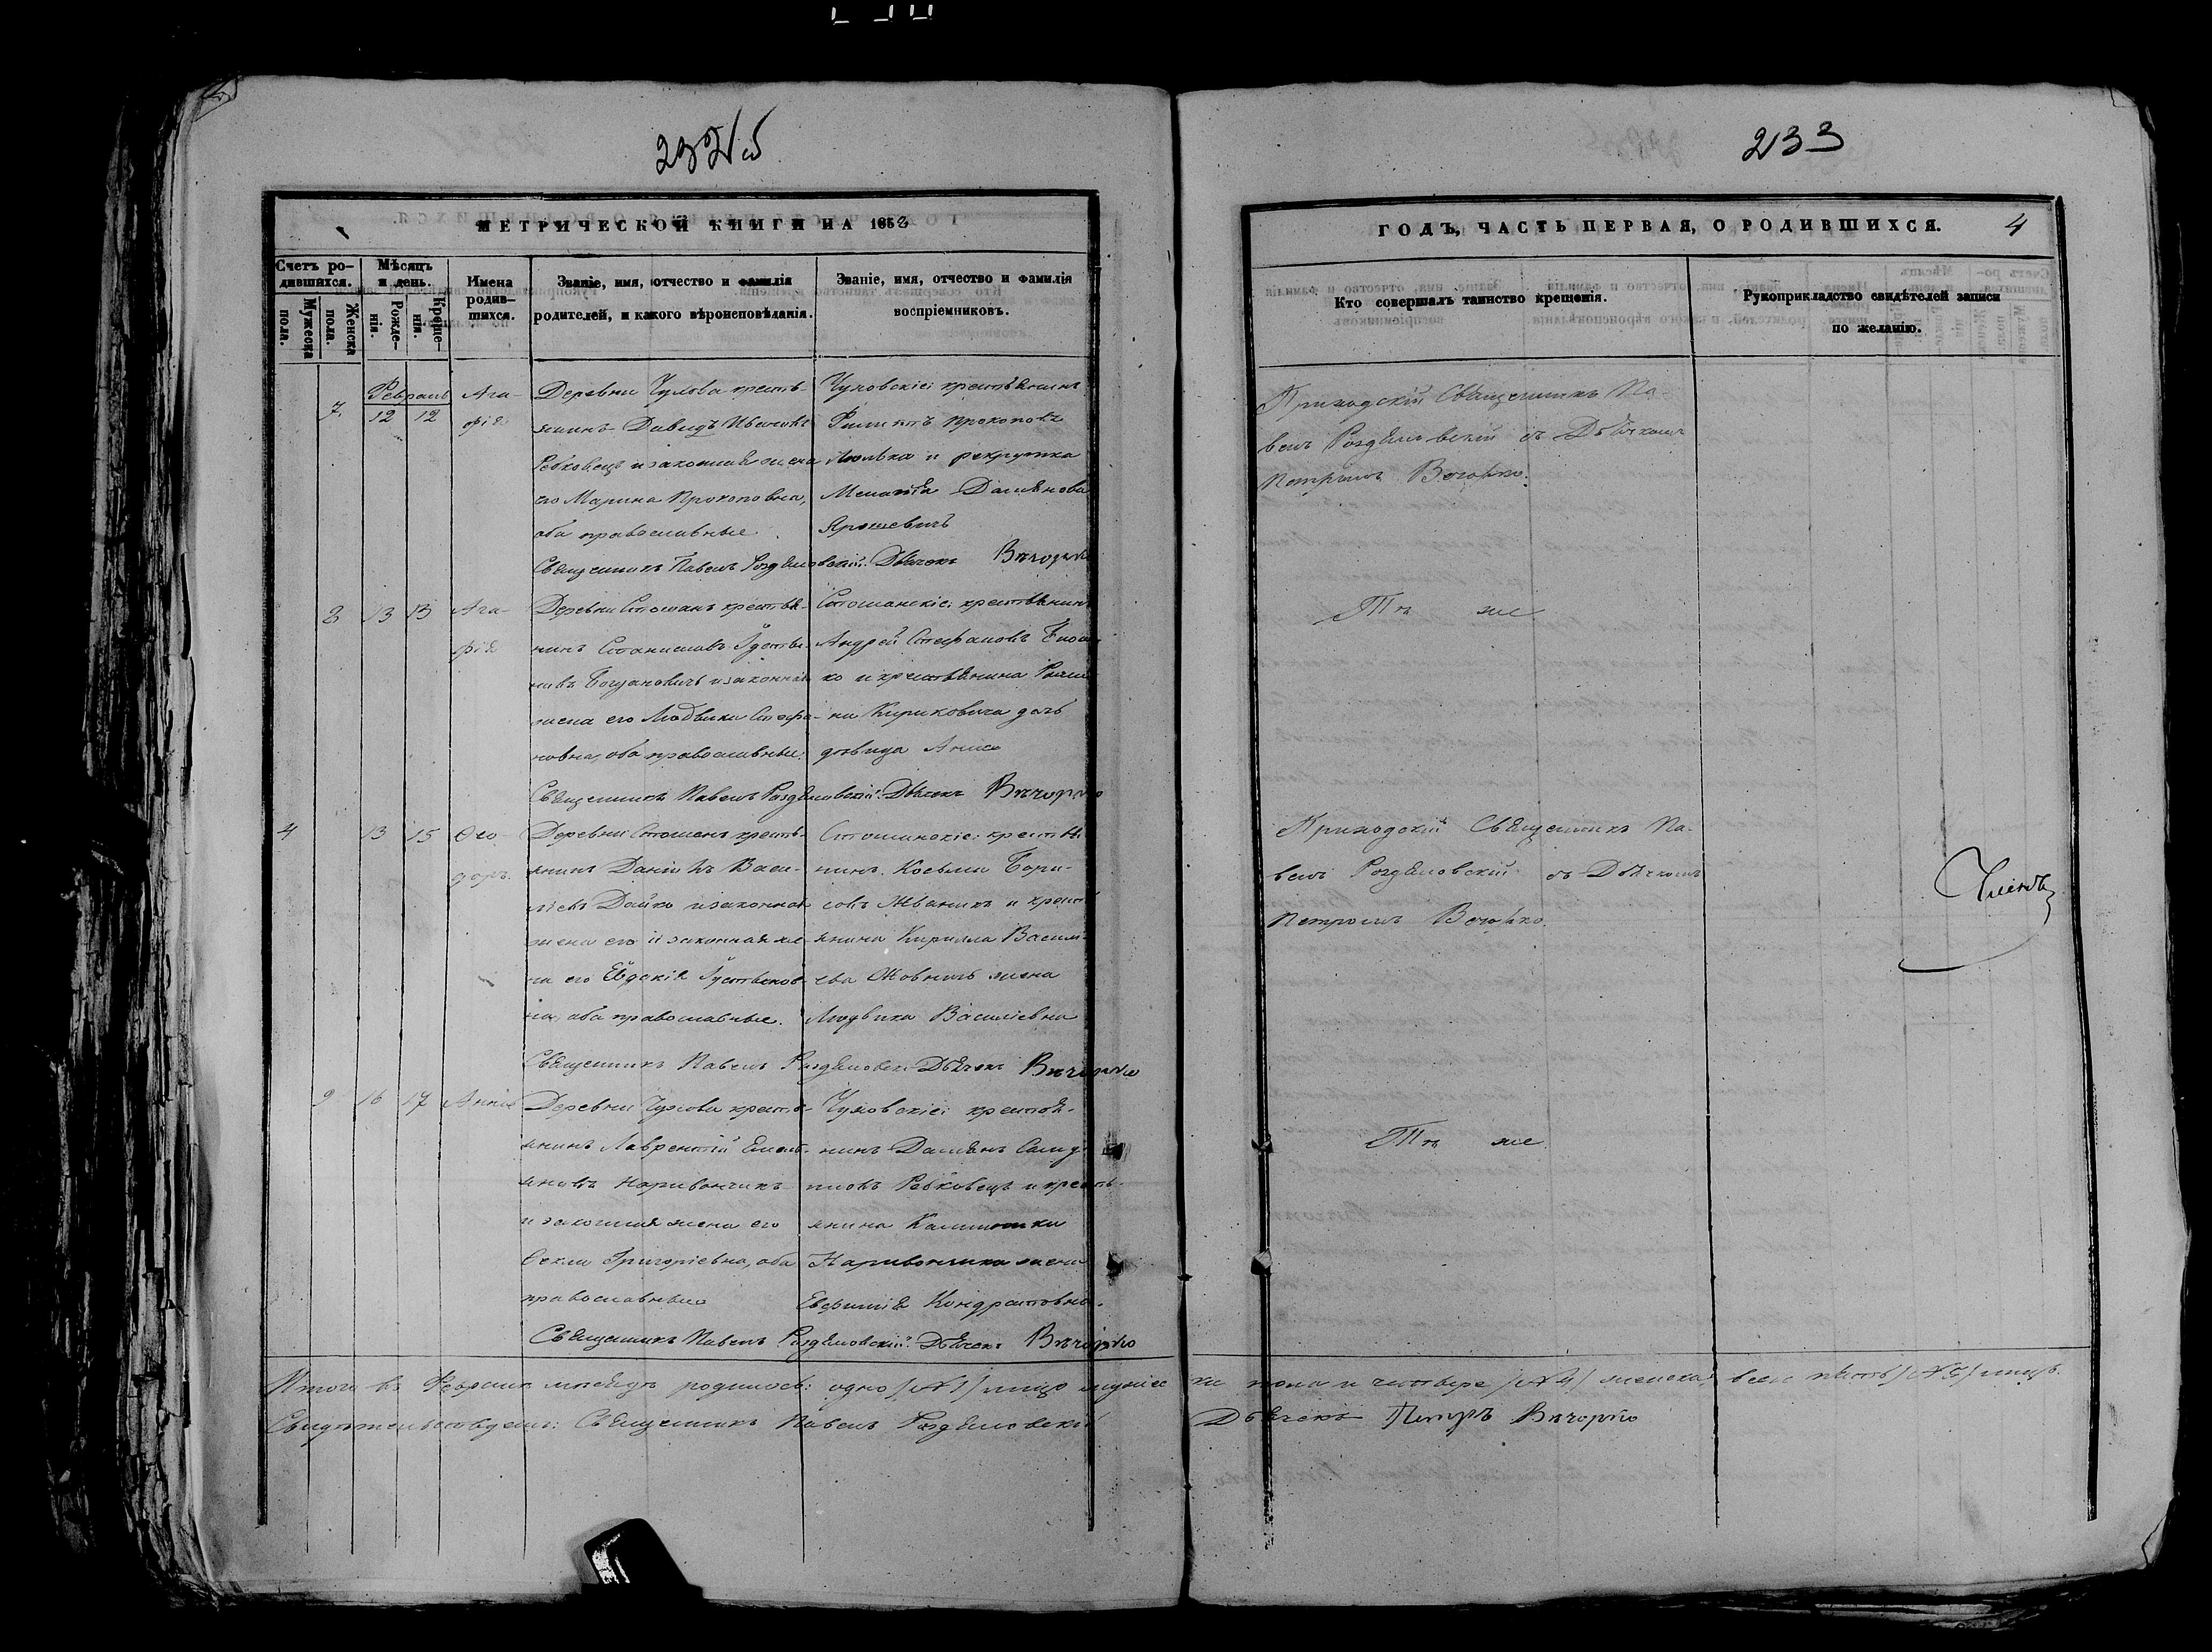 232об
МЕТРИЧЕСКОЙ КНИГИ НА 1853
Счетъ ро-
дившихся.
Мужеска пола.
Женска пола.
Мѣсяцъ
и день.
Рожде-
нія.
Креще-
нія.
Имена
родив-
шихся.
Званіе, имя, отчество и фамилія
родителей, и какого вѣроисповѣданія.
Званіе, имя, отчество и фамилія
воспріемниковъ.
Февраль
7. 12 12
Ага-
фія
Деревни Чулова кресть-
янинъ Давидъ Ивановъ
Ребковецъ и законная жена
его Марина Прокоповна,
оба православные
Священникъ Павелъ Роздяловскій. Дьячекъ Вечорко
Чуловскіе: крестьянинъ
Филиппъ Прокоповъ
Люлька и рекрутка
Меланія Даміянова
Ярошевичъ
8 13 13
Ага-
фія
Деревни Стошанъ крестья-
нинъ Станиславъ Устьи-
новъ Богдановичъ и законная
жена его Людвика Стефа-
новна, оба православные.
Священникъ Павелъ Роздяловскій. Дьячекъ Вечорко
Стошанскіе: крестьянинъ
Андрей Стефановъ
ко и крестьянина
на Кириковича дочь
дѣвица
4 13 15
Ѳео-
доръ.
Деревни Стошанъ кресть-
янинъ Даніилъ Васи-
ліевъ Дайко и законная
жена его и законная же-
на его Евдокія Устьинов-
на, оба православные.
Священникъ Павелъ Роздяловскій Дьячекъ Вечорко
Стошанскіе: крестья
нинъ Косьма Бори-
совъ Жваникъ и крестья
янина Кирилла Васили-
ева Жовничъ жена
Людвика Василіевна
9 16 17 Анна
Деревни Чулова крестья-
янинъ Лаврентій Емель-
яновъ Наривончикъ
и законная жена его
Ѳекла Григоріевна, оба
православные
Священникъ Павелъ Роздяловскій. Дьячекъ Вечорко
Чуловскіе: крестья-
нинъ Даміянъ Саму-
иловъ Ребковецъ и кресть-
янина
Наривончика жена
Евфимія Кондратовна.
Итого въ Февралѣ мѣсяцѣ родилось: одно /№1/ лицо мужес
Свидѣтельствуемъ: Священникъ Павелъ Роздяловскій
233
ГОДЪ, ЧАСТЬ ПЕРВАЯ, О РОДИВШИХСЯ. 4
Кто совершалъ таинство крещенія.
Рукоприкладство свидѣтелей записи
по желанію.
Приходскій Священникъ Па-
велъ Роздяловскій съ Дьячкомъ
Петромъ Вечорко.
Тѣ же
Приходскій Священникъ Па-
велъ Роздяловскій съ Дьячкомъ
Петромъ Вечорко.
Членъ
Тѣ же.
ка пола и четверо /№4/ женска; всего пять /№5/ лицъ.
Дьячекъ Петръ Вечорко